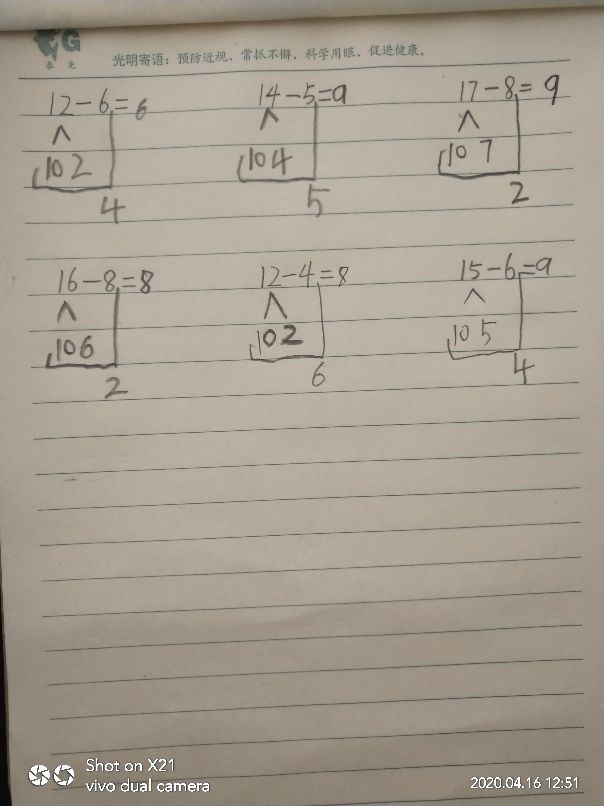 G
春光
光明寄语：预防近视、常抓不懈、科学用眼、促进健康。
12-6=6 14-5=9 17-8=9
10 2 10 4 10 7
4 5 2
16-8=8 12-4=8 15-6=9
10 6 10 2 10 5
2 6 4
Shot on X21
vivo dual camera
2020.04.16 12:51